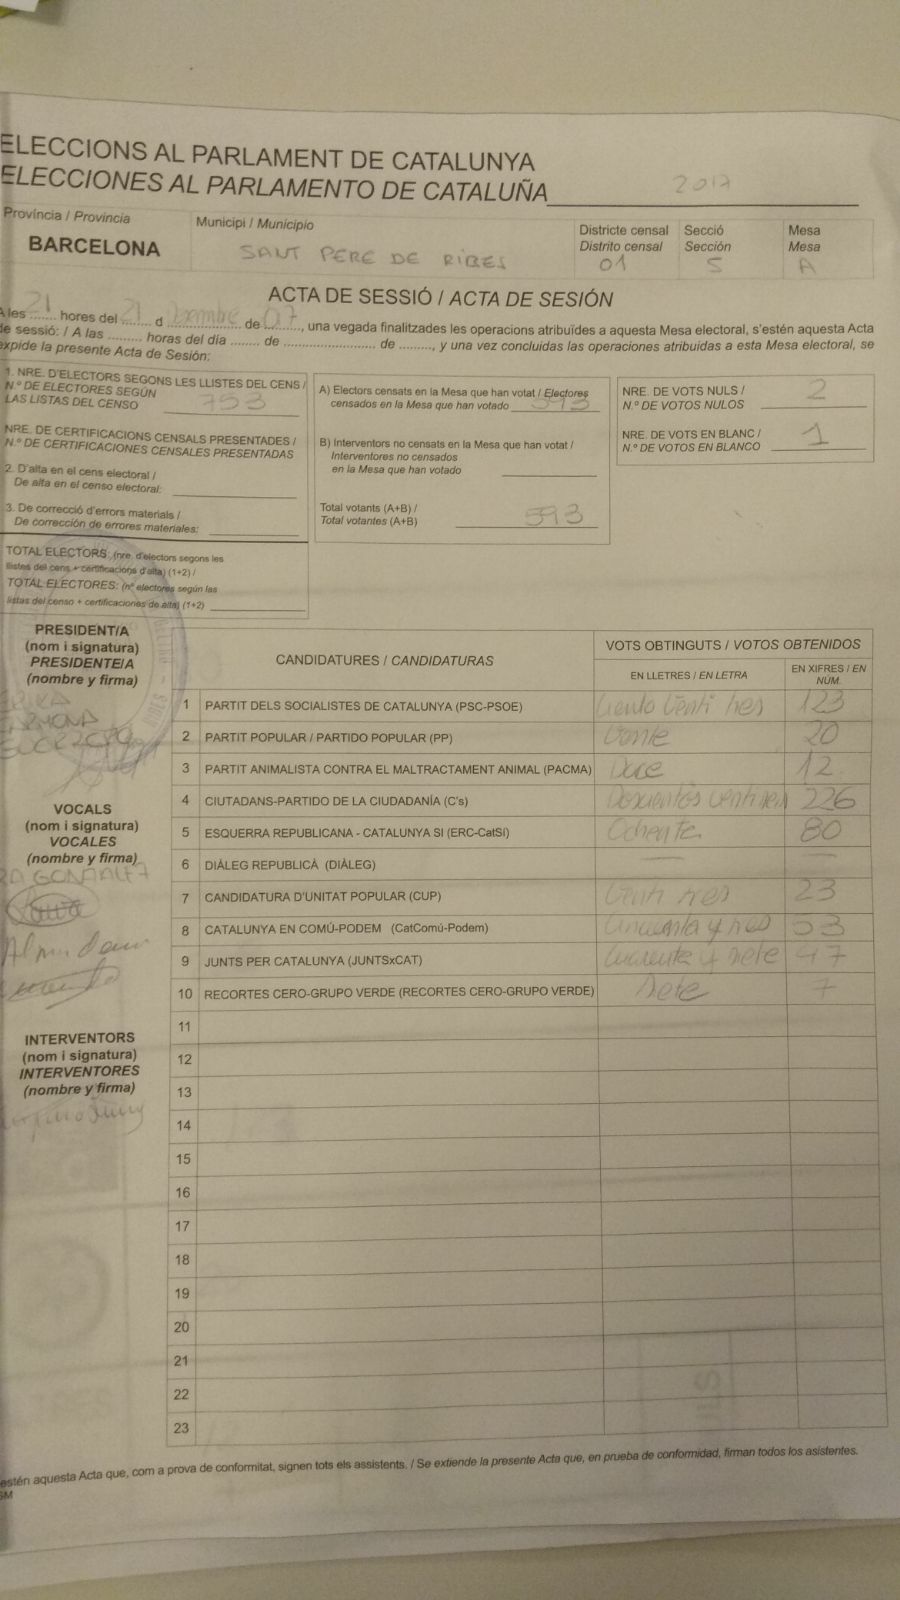 ELECCIONS AL PARLAMENT DE CATALUNYA
ELECCIONES AL PARLAMENTO DE CATALUÑA 2017
Província / Provincia
BARCELONA
Municipi / Municipio
SANT PERE DE RIBES
Districte censal
Distrito censal
01
Secció
Sección
5
Mesa
Mesa
A
ACTA DE SESSIÓ / ACTA DE SESIÓN
A les 21 hores del 21 d Desembre de 017, una vegada finalitzades les operacions atribuïdes a aquesta Mesa electoral, s'estén aquesta Acta
de sessió: / A las ......... horas del día ....... de ........................ de ........, y una vez concluidas las operaciones atribuidas a esta Mesa electoral, se
expide la presente Acta de Sesión:
1. NRE. D'ELECTORS SEGONS LES LLISTES DEL CENS /
N.º DE ELECTORES SEGÚN
LAS LISTAS DEL CENSO 753
NRE. DE CERTIFICACIONS CENSALS PRESENTADES /
N.º DE CERTIFICACIONES CENSALES PRESENTADAS
2. D'alta en el cens electoral /
De alta en el censo electoral:
3. De correcció d'errors materials /
De corrección de errores materiales:
TOTAL ELECTORS: (nre. d'electors segons les
llistes del cens + certificacions d'alta) (1+2) /
TOTAL ELECTORES: (nº electores según las
listas del censo + certificaciones de alta) (1+2)
A) Electors censats en la Mesa que han votat / Electores
censados en la Mesa que han votado 593
B) Interventors no censats en la Mesa que han votat /
Interventores no censados
en la Mesa que han votado
Total votants (A+B) /
Total votantes (A+B) 593
NRE. DE VOTS NULS /
N.º DE VOTOS NULOS 2
NRE. DE VOTS EN BLANC /
N.º DE VOTOS EN BLANCO 1
PRESIDENT/A
(nom i signatura)
PRESIDENTE/A
(nombre y firma)
VOCALS
(nom i signatura)
VOCALES
(nombre y firma)
INTERVENTORS
(nom i signatura)
INTERVENTORES
(nombre y firma)
CANDIDATURES / CANDIDATURAS
VOTS OBTINGUTS / VOTOS OBTENIDOS
EN LLETRES / EN LETRA
EN XIFRES / EN
NÚM.
1 PARTIT DELS SOCIALISTES DE CATALUNYA (PSC-PSOE) Ciento Venti tres 123
2 PARTIT POPULAR / PARTIDO POPULAR (PP) Vente 20
3 PARTIT ANIMALISTA CONTRA EL MALTRACTAMENT ANIMAL (PACMA) Doce 12
4 CIUTADANS-PARTIDO DE LA CIUDADANÍA (C's) Doscientos 226
5 ESQUERRA REPUBLICANA - CATALUNYA SI (ERC-CatSí) Ochenta 80
6 DIÀLEG REPUBLICÀ (DIÀLEG) — —
7 CANDIDATURA D'UNITAT POPULAR (CUP) Venti tres 23
8 CATALUNYA EN COMÚ-PODEM (CatComú-Podem) Cincuenta y tres 53
9 JUNTS PER CATALUNYA (JUNTSxCAT) Cuarenta y siete 47
10 RECORTES CERO-GRUPO VERDE (RECORTES CERO-GRUPO VERDE) Siete 7
11
12
13
14
15
16
17
18
19
20
21
22
23
estén aquesta Acta que, com a prova de conformitat, signen tots els assistents. / Se extiende la presente Acta que, en prueba de conformidad, firman todos los asistentes.